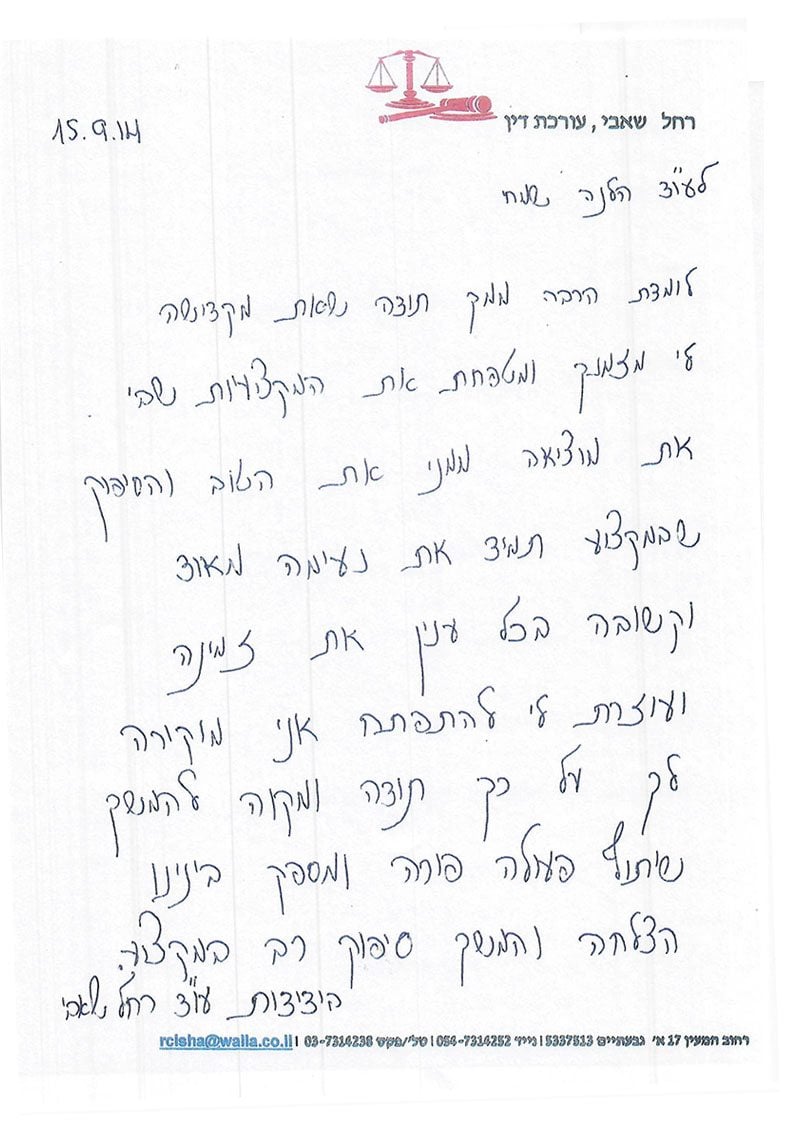 רחל שאבי, עורכת דין
15.9.14
לעו"ד הלנה שמח
לומדת הרבה ממך תודה שאת מקדישה
לי מזמנך ומטפחת את המקצועיות שבי
את מוציאה ממני את הטוב והסיפוק
שבמקצוע תמיד את נעימה מאוד
וקשובה בכל ענין את זמינה
ועוזרת לי להתפתח אני מוקירה
לך על כך תודה ומקוה להמשך
שיתוף פעולה פורה ומספק בינינו
הצלחה והמשך סיפוק רב במקצוע.
בידידות עו"ד רחל שאבי
רחוב המעין 17 א' גבעתיים 5337513 | נייד 054-7314252 | טל'/פקס 03-7314238 | rcisha@walla.co.il